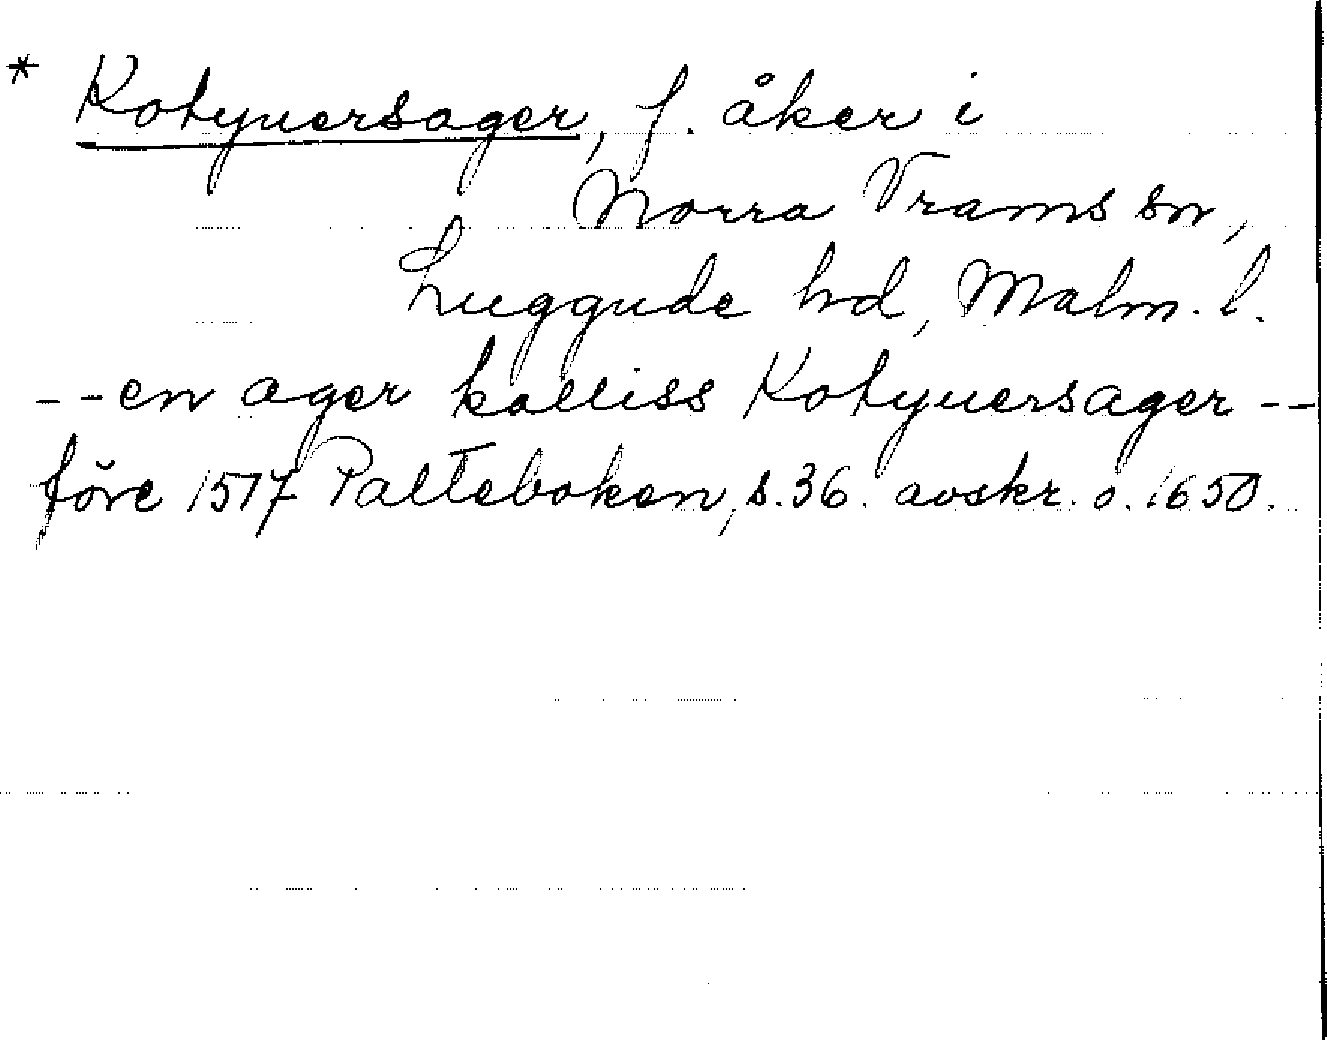 * Kotyuersager, f. åker i
Norra Vrams sn,
Luggude hd, Malm. l.
-- en ager kalliss Kotyuersager --
före 1517 Palteboken, s. 36. avskr. o. 1650.